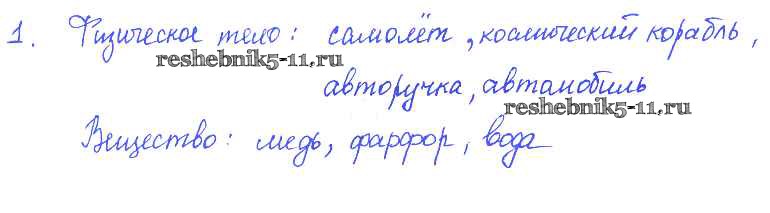 1. Физическое тело: самолёт, космический корабль,
reshebnik5-11.ru
авторучка, автомобиль
reshebnik5-11.ru
Вещество: медь, фарфор, вода